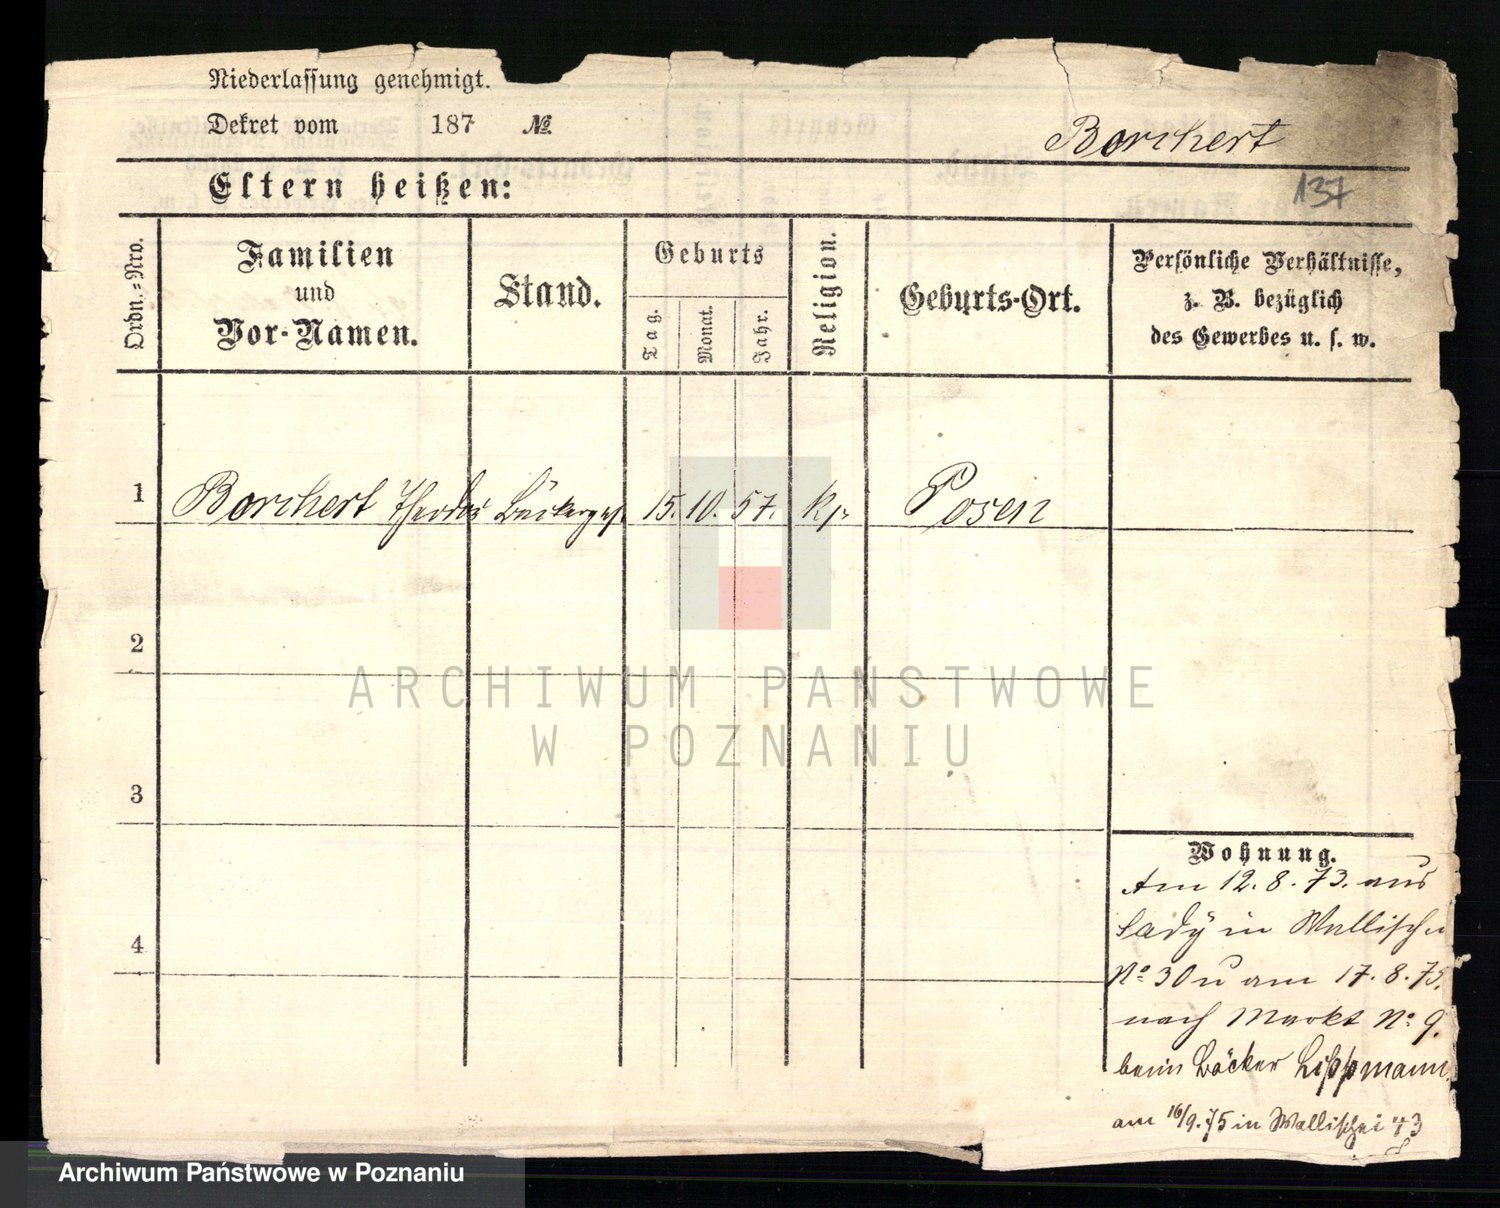 Niederlassung genehmigt.
Dekret vom 187 №
Borchert
Eltern heißen:
137
Ordn.-Nro.
Familien
und
Vor-Namen.
Stand.
Geburts
Tag.
Monat.
Jahr.
Religion.
Geburts-Ort.
Persönliche Verhältnisse,
z. B. bezüglich
des Gewerbes u. s. w.
1 Borchert Theodor Bäckerges. 15. 10. 57. Posen
2
ARCHIWUM PAŃSTWOWE
W POZNANIU
3
4
Wohnung.
Am 12. 8. 73. aus
in Wallischei
No 30 u am 17. 8. 75.
nach Markt No 9.
beim Bäcker Lippmann.
am 16/9. 75 in Wallischei 43
Archiwum Państwowe w Poznaniu